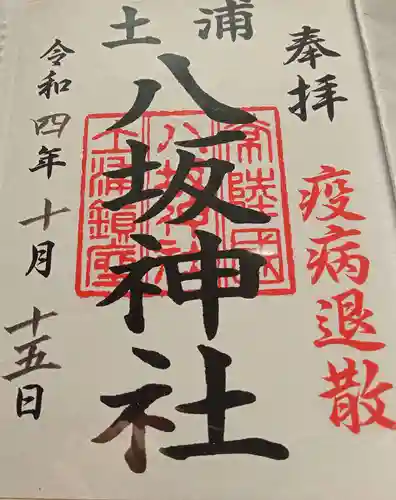 奉拝
疫病退散
土浦
八坂神社
常陸國
八坂神社
土浦鎮座
令和四年十月十五日